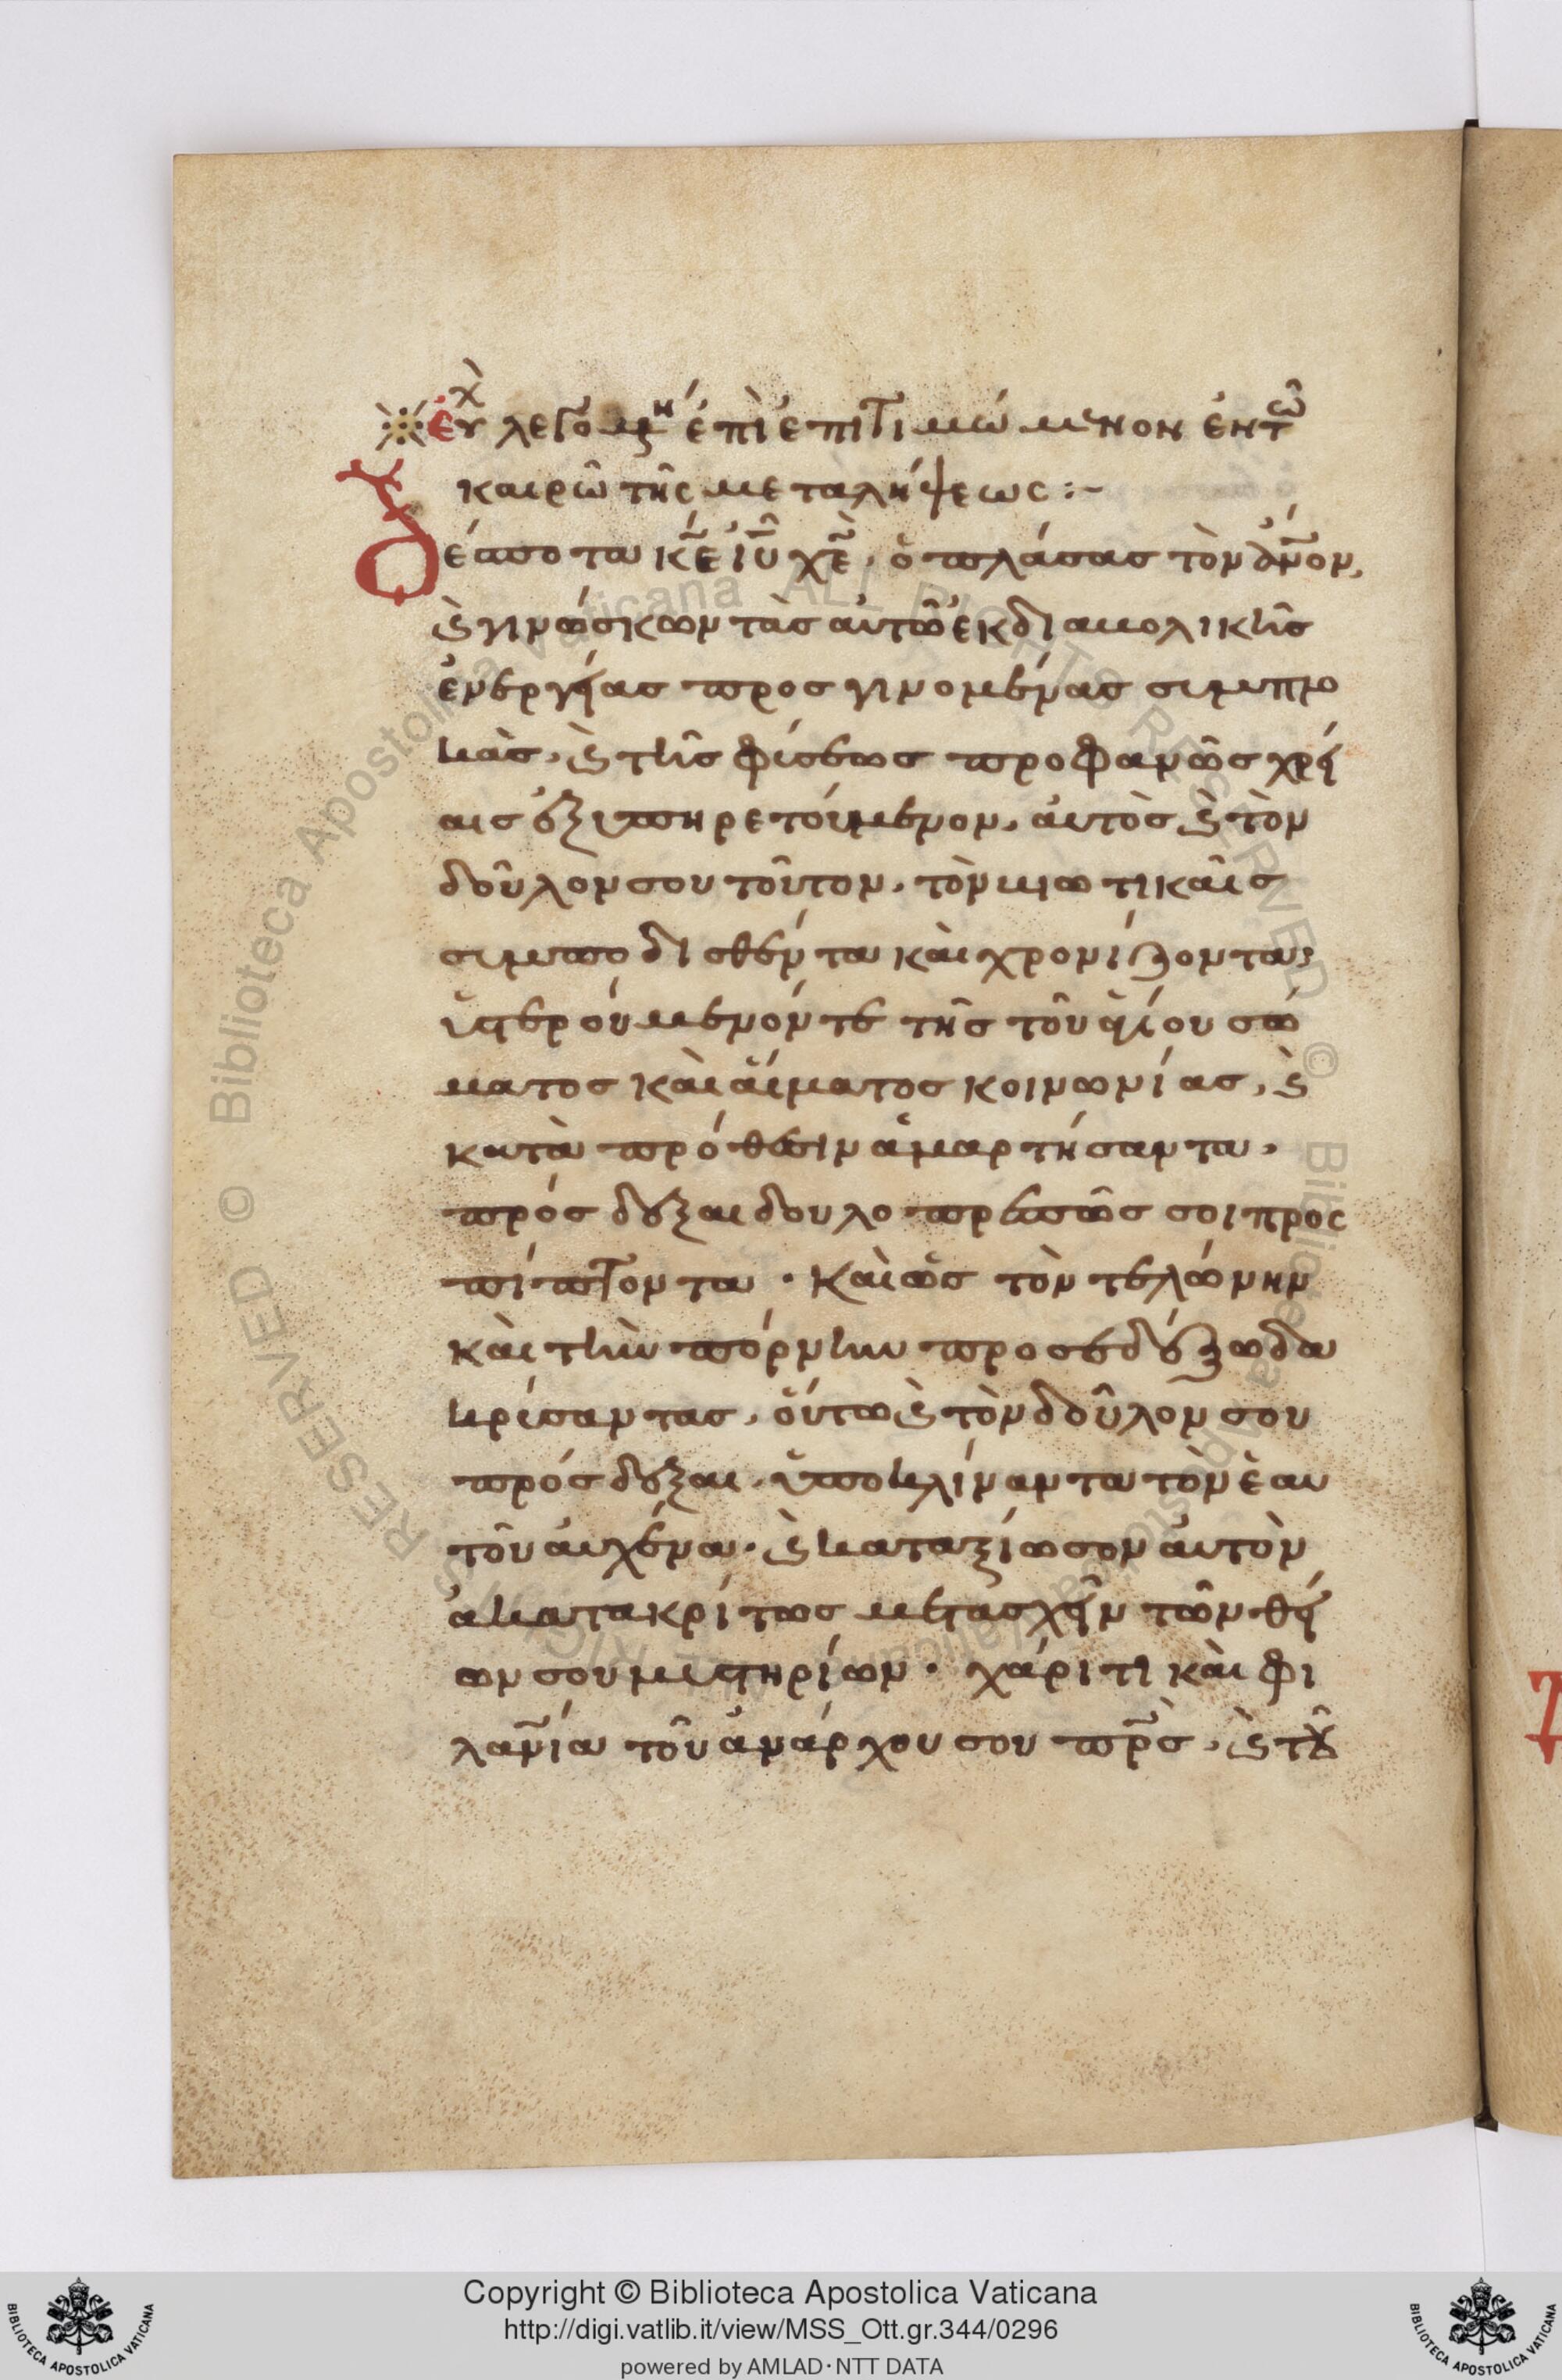 εὐχ λεγομένη ἐπὶ ἐπιτιμώμενον ἐν τῶ
καιρῶ τῆς μεταλήψεως :-
Δέσποτα κ̅ε̅ ἰ̅υ̅ χ̅ε̅, ὁ πλάσας τὸν ἄ̅ν̅ο̅ν̅,
ϗ γινώσκων τὰς αὐτῶ ἐκ διαβολικῆς
ἐνεργείας προσγινομένας συμπτω
κὰς, ϗ τῆς φύσεως προφανῶς χρεί
αις ἐξυπηρετούμενον, αὐτὸς ϗ τὸν
δοῦλον σου τοῦτον, τὸν βιωτικαῖς
συμποδισθέντα καὶ χρονίζοντα,
ὑστερούμενόν τε τῆς τοῦ ἁγίου σώ
ματος καὶ αἵματος κοινωνίας, ϗ
κατὰ πρόθεσιν ἁμαρτήσαντα,
πρόσδεξαι δουλοπρεπῶς σοι προς
πίπτοντα · Καὶ ὡς τὸν τελώνην
καὶ τὴν πόρνην προσεδέξω δα
κρύσαντας, οὕτω ϗ τὸν δοῦλον σου
πρόσδεξαι, ὑποκλίναντα τὸν ἑαυ
τοῦ αὐχένα · ϗ καταξίωσον αὐτὸν
ἀκατακρίτως μετασχεῖν τῶν θεί
ων σου μυστηρίων · χάριτι καὶ φι
λανίᾳ τοῦ ἀνάρχου σου π̅ρ̅ς̅, ϗ τοῦ
Copyright © Biblioteca Apostolica Vaticana
http://digi.vatlib.it/view/MSS_Ott.gr.344/0296
powered by AMLAD·NTT DATA